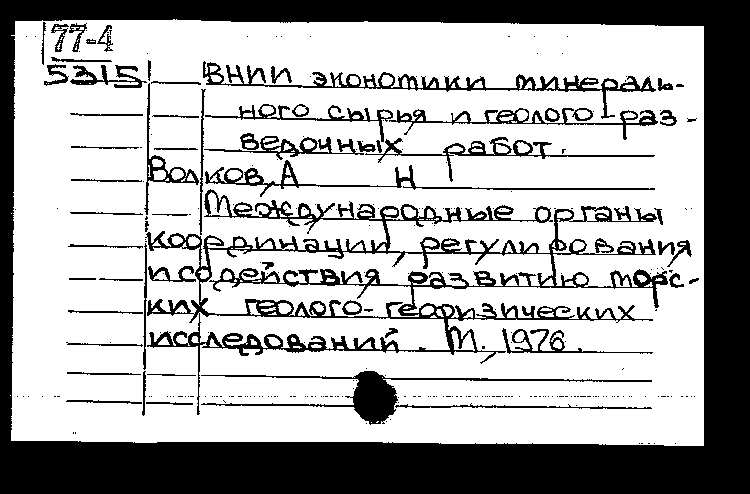 77-4
5315 ВНИИ экономики минераль-
ного сырья и геолого-раз-
ведочных работ.
Волков, А Н
Международные органы
координации, регулирования
и содействия развитию морс-
ких геолого-геофизических
исследований. М., 1976.